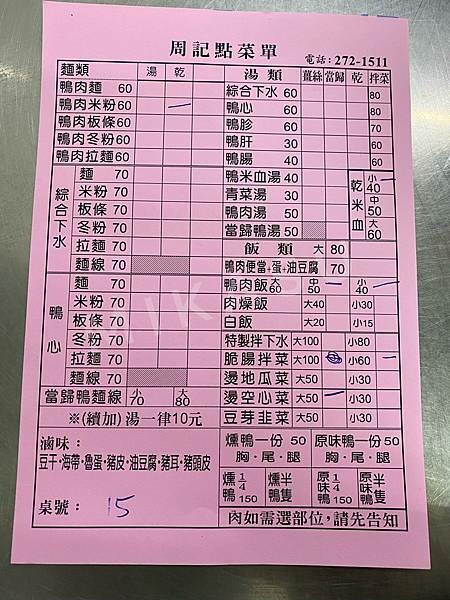 周記點菜單
電話:272-1511
麵類 湯 乾
鴨肉麵 60
鴨肉米粉60 一
鴨肉板條60
鴨肉冬粉60
鴨肉拉麵60
綜合下水
麵 70
米粉 70
板條 70
冬粉 70
拉麵 70
麵線 70
鴨心
麵 70
米粉 70
板條 70
冬粉 70
拉麵 70
麵線 70
當歸鴨麵線 小70 大80
※(續加)湯一律10元
滷味:
豆干·海帶·魯蛋·豬皮·油豆腐·豬耳·豬頭皮
桌號: 15
湯類 薑絲 當歸 乾 拌菜
綜合下水 60 80
鴨心 60 80
鴨胗 60 70
鴨肝 30 60
鴨腸 40 60
鴨米血湯 40
青菜湯 30
鴨肉湯 50
當歸鴨湯 50
乾米血 小40 一 中50 大60
飯類 大 80
鴨肉便當+蛋+油豆腐 70
鴨肉飯 大60 中50 一 小40 一
肉燥飯 大40 小30
白飯 大20 小15
特製拌下水 大100 小80
脆腸拌菜 大100 小60 一
燙地瓜菜 大50 小30
燙空心菜 大50 一 小30
豆芽韭菜 大50 小30
燻鴨一份 50 胸·尾·腿
原味鴨一份 50 胸·尾·腿
燻鴨 1/4 150 燻鴨半隻
原味鴨 1/4 150 原味鴨半隻
內如需選部位,請先告知